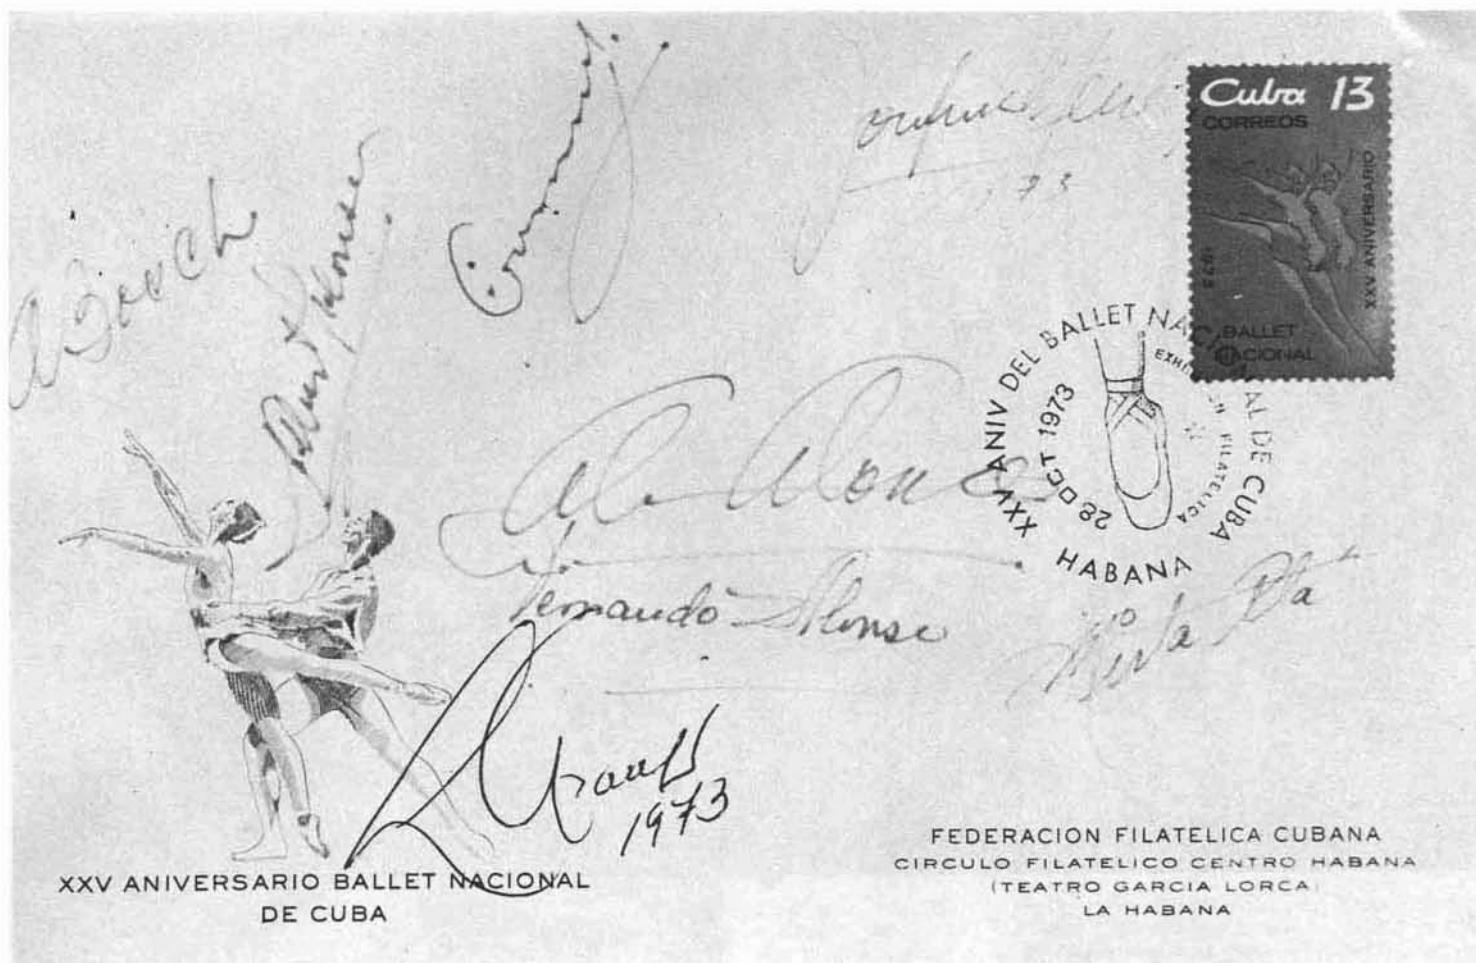 Cuba 13
CORREOS
1973
XXV ANIVERSARIO
BALLET
NACIONAL
XXV ANIV DEL BALLET NACIONAL DE CUBA
EXHIBICION FILATELICA
28 OCT 1973
HABANA
A Bosch
Alonso
Fernando Alonso
Mirta Pla
1973
XXV ANIVERSARIO BALLET NACIONAL
DE CUBA
FEDERACION FILATELICA CUBANA
CIRCULO FILATELICO CENTRO HABANA
(TEATRO GARCIA LORCA)
LA HABANA